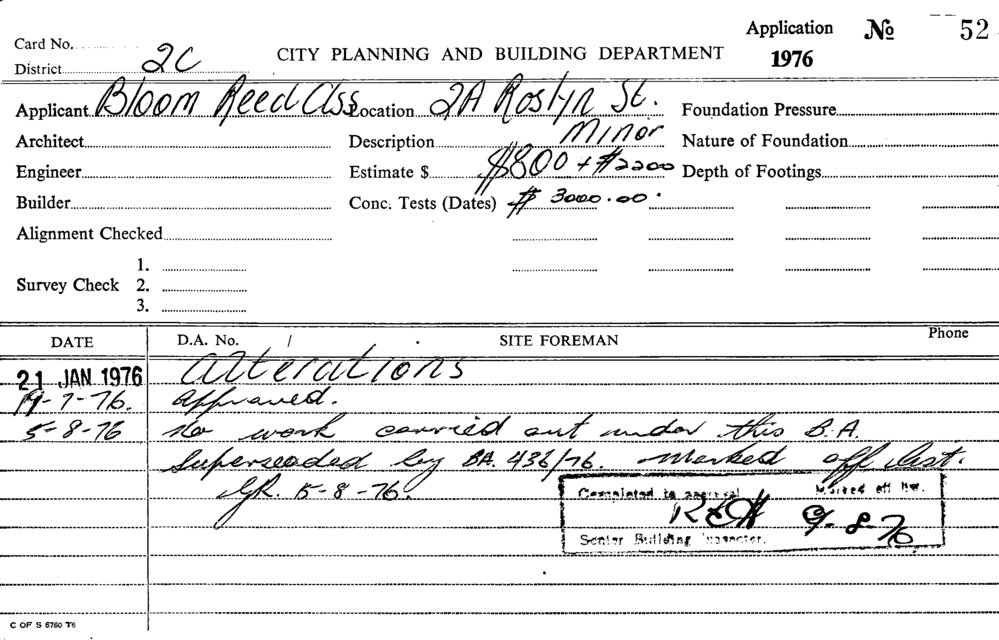 Application № 52
Card No.
1976
District 2C
CITY PLANNING AND BUILDING DEPARTMENT
Applicant Bloom Reed Ass Location 2A Roslyn St. Foundation Pressure
Architect Description Minor Nature of Foundation
Engineer Estimate $ $800 + $2200 Depth of Footings
Builder Conc. Tests (Dates) $ 3000.00.
Alignment Checked
1.
Survey Check 2.
3.
DATE D.A. No. / SITE FOREMAN Phone
21 JAN 1976 Alterations
19-7-76. approved.
5-8-76 No work carried out under this B.A.
Superseaded by BA. 436/76. Marked off list.
5-8-76.
Completed to approval Marked off list.
9-8-76
Senior Building Inspector.
C OF S 6760 T6